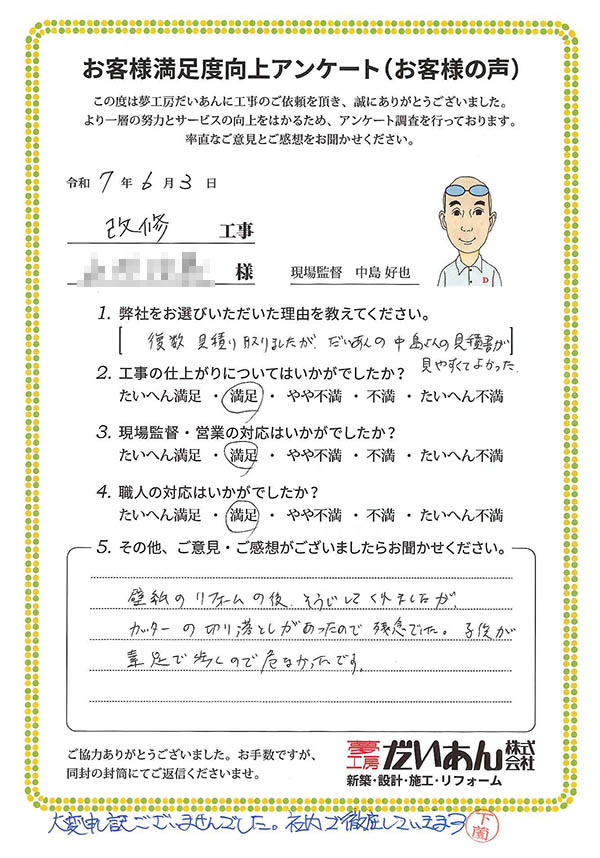 お客様満足度向上アンケート（お客様の声）
この度は夢工房だいあんに工事のご依頼を頂き、誠にありがとうございました。
より一層の努力とサービスの向上をはかるため、アンケート調査を行っております。
率直なご意見とご感想をお聞かせください。
令和 7 年 6 月 3 日
改修 工事
様
現場監督 中島 好也
D
1. 弊社をお選びいただいた理由を教えてください。
復数 見積り取りましたが、だいあんの中島さんの見積書が
見やすくてよかった
2. 工事の仕上がりについてはいかがでしたか？
たいへん満足 ・ 満足 ・ やや不満 ・ 不満 ・ たいへん不満
3. 現場監督・営業の対応はいかがでしたか？
たいへん満足 ・ 満足 ・ やや不満 ・ 不満 ・ たいへん不満
4. 職人の対応はいかがでしたか？
たいへん満足 ・ 満足 ・ やや不満 ・ 不満 ・ たいへん不満
5. その他、ご意見・ご感想がございましたらお聞かせください。
壁紙のリフォームの後、そうじしてくれましたが、
カッターの切り落としがあったので残念でした。子供が
素足で歩くので危なかったです。
ご協力ありがとうございました。お手数ですが、
同封の封筒にてご返信くださいませ。
夢工房 だいあん 株式会社
新築・設計・施工・リフォーム
大変申し訳ございませんでした。社内で徹底していきます
下薗